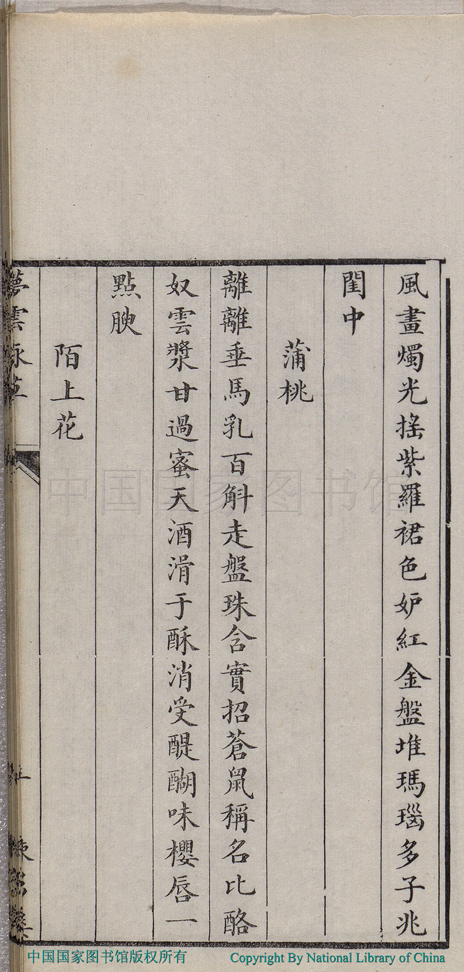 風畫燭光搖紫羅裙色妒紅金盤堆瑪瑙多子兆
閨中
蒲桃
離離垂馬乳百斛走盤珠含實招蒼鼠稱名比酪
奴雲漿甘過蜜天酒滑于酥消受醍醐味櫻唇一
點腴
陌上花
夢雲詠草
中国国家图书馆
中国国家图书馆版权所有
Copyright By National Library of China